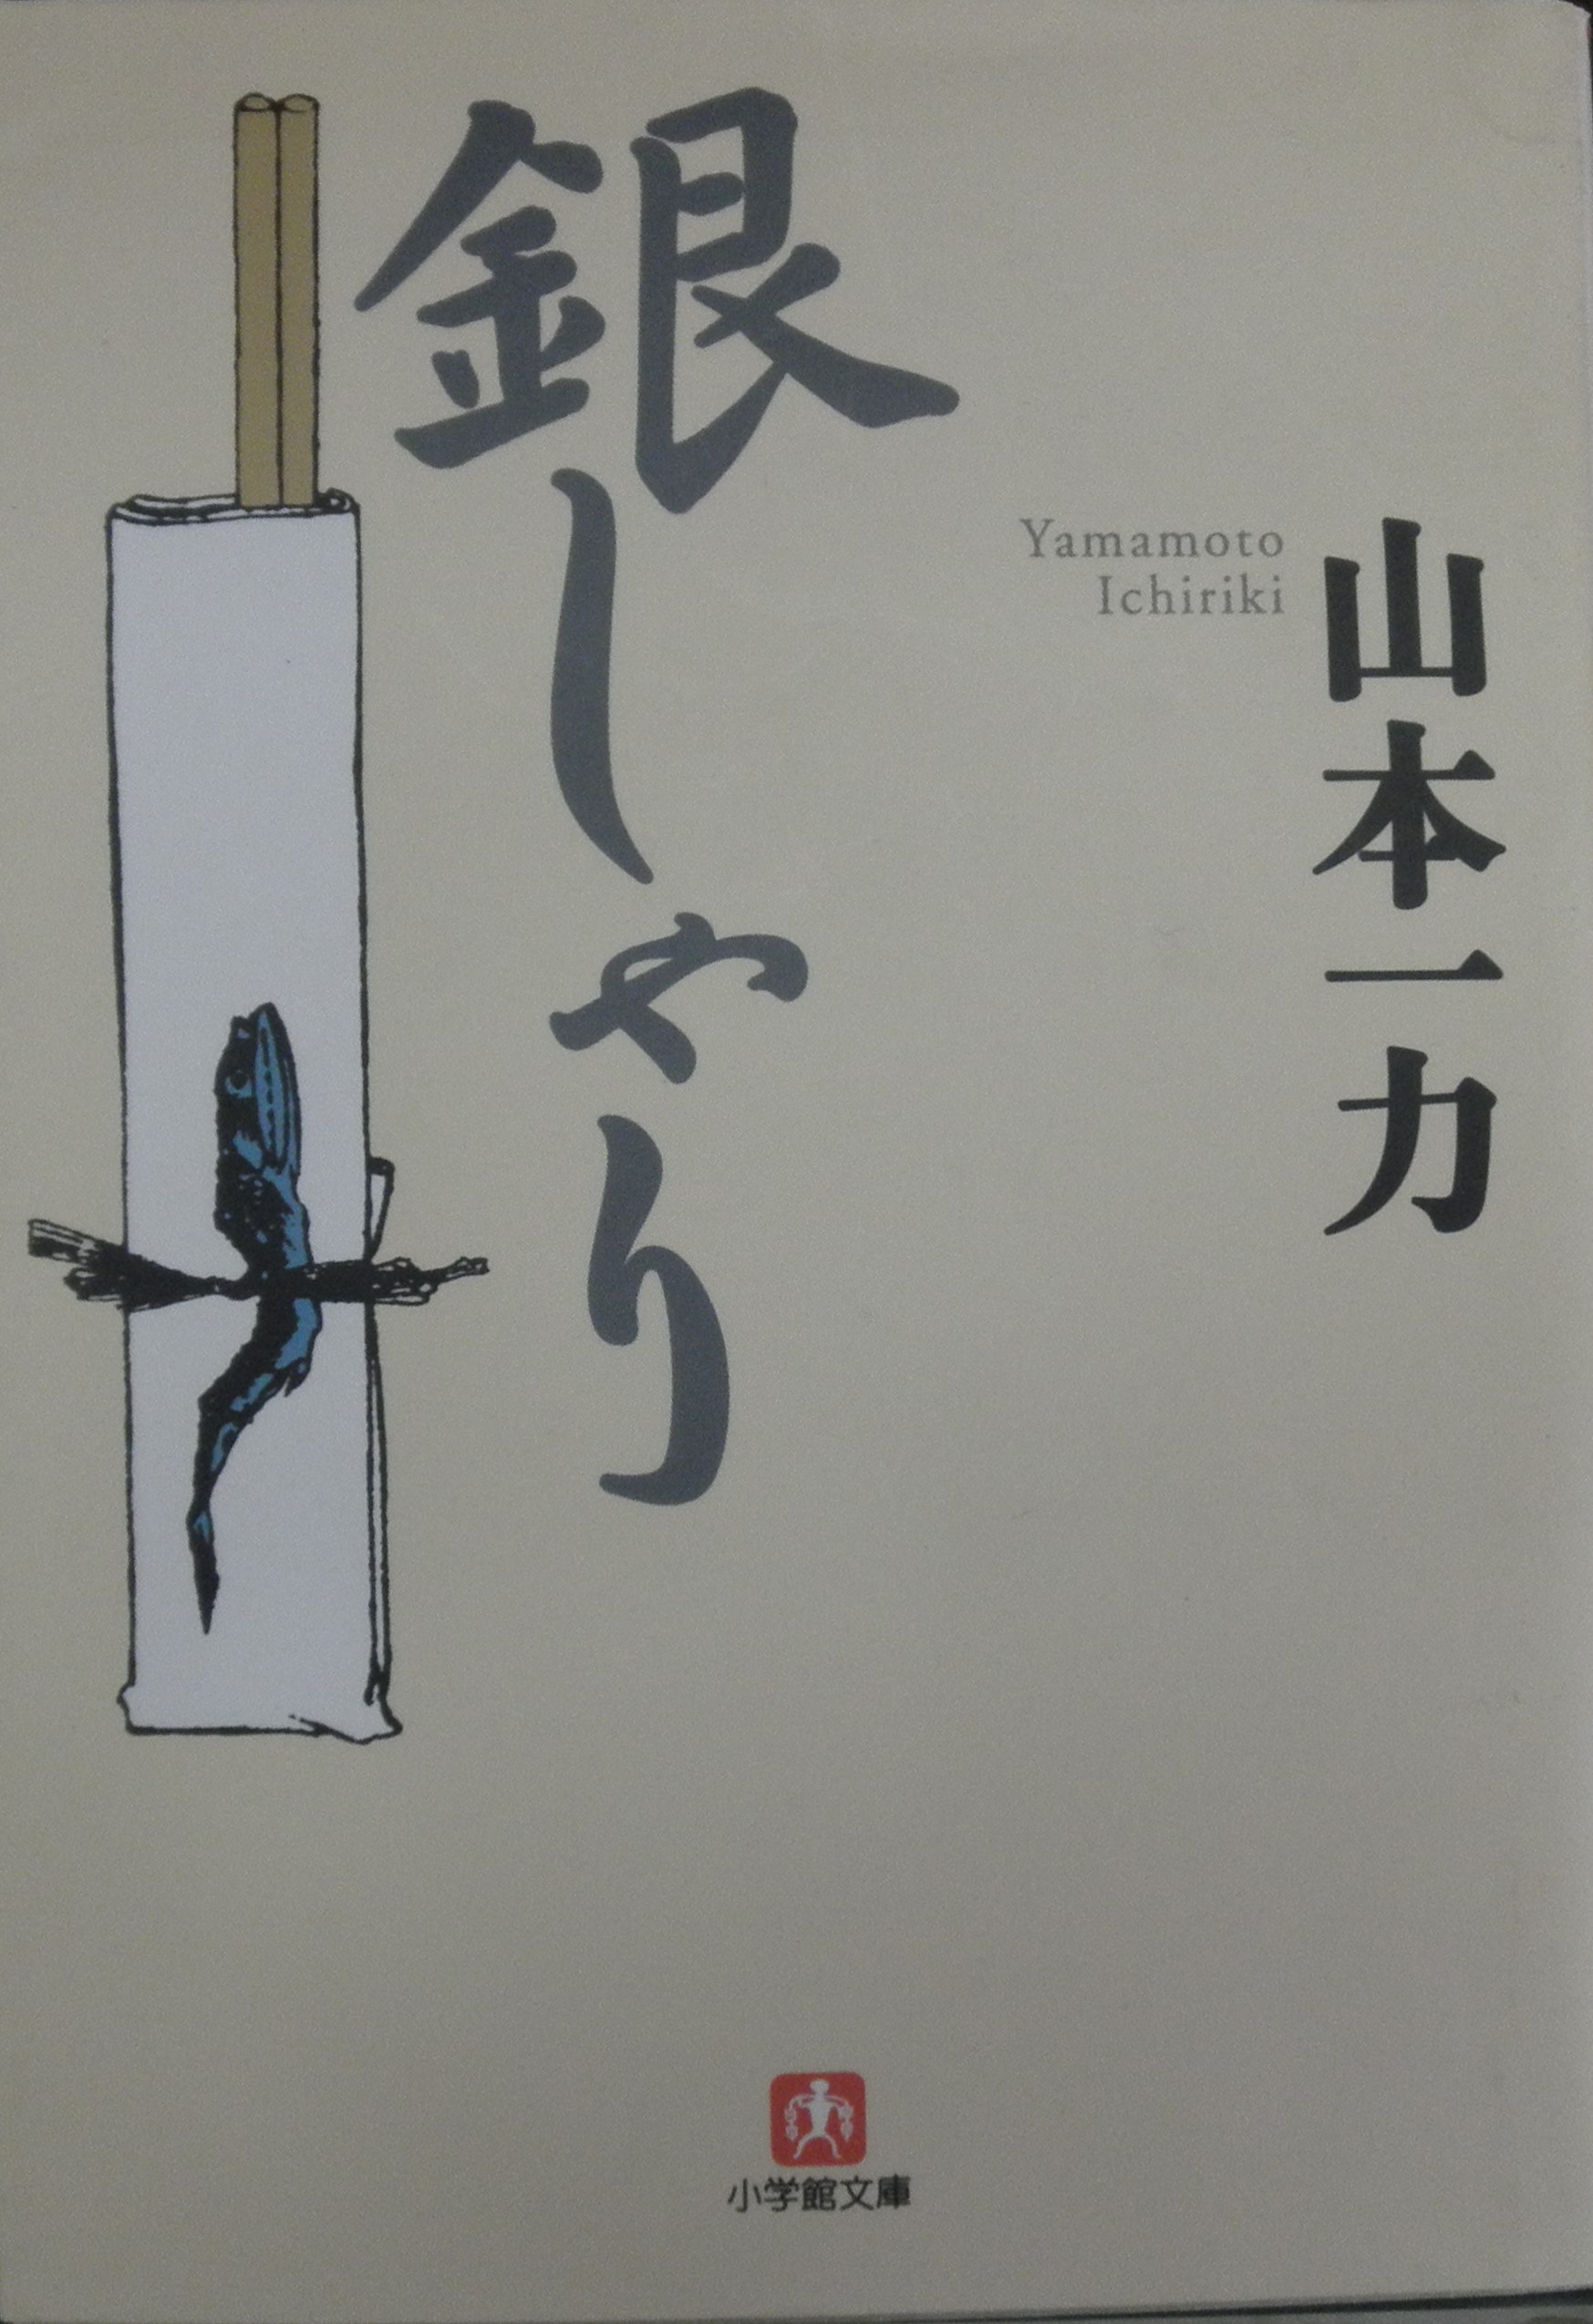 山本一力
Yamamoto
Ichiriki
銀しゃり
小学館文庫